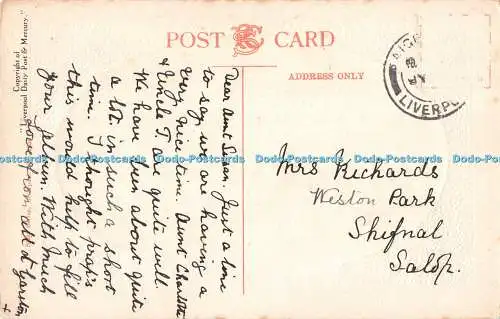 POST CARD
ADDRESS ONLY
Copyright of
"Liverpool Daily Post & Mercury."
LIVERPO
Dear Aunt Susan. Just a line
to say we are having a
very nice time. Aunt Charlotte
& Uncle T are quite well
We have been about quite
a lot in such a short
time. I thought
this would help to fill
your album. With much
love from all at Garston
x
Mrs Richards
Weston Park
Shifnal
Salop.
Data-Postcards.com
Data-Postcards.com
Data-Postcards.com
Data-Postcards.com
Data-Postcards.com